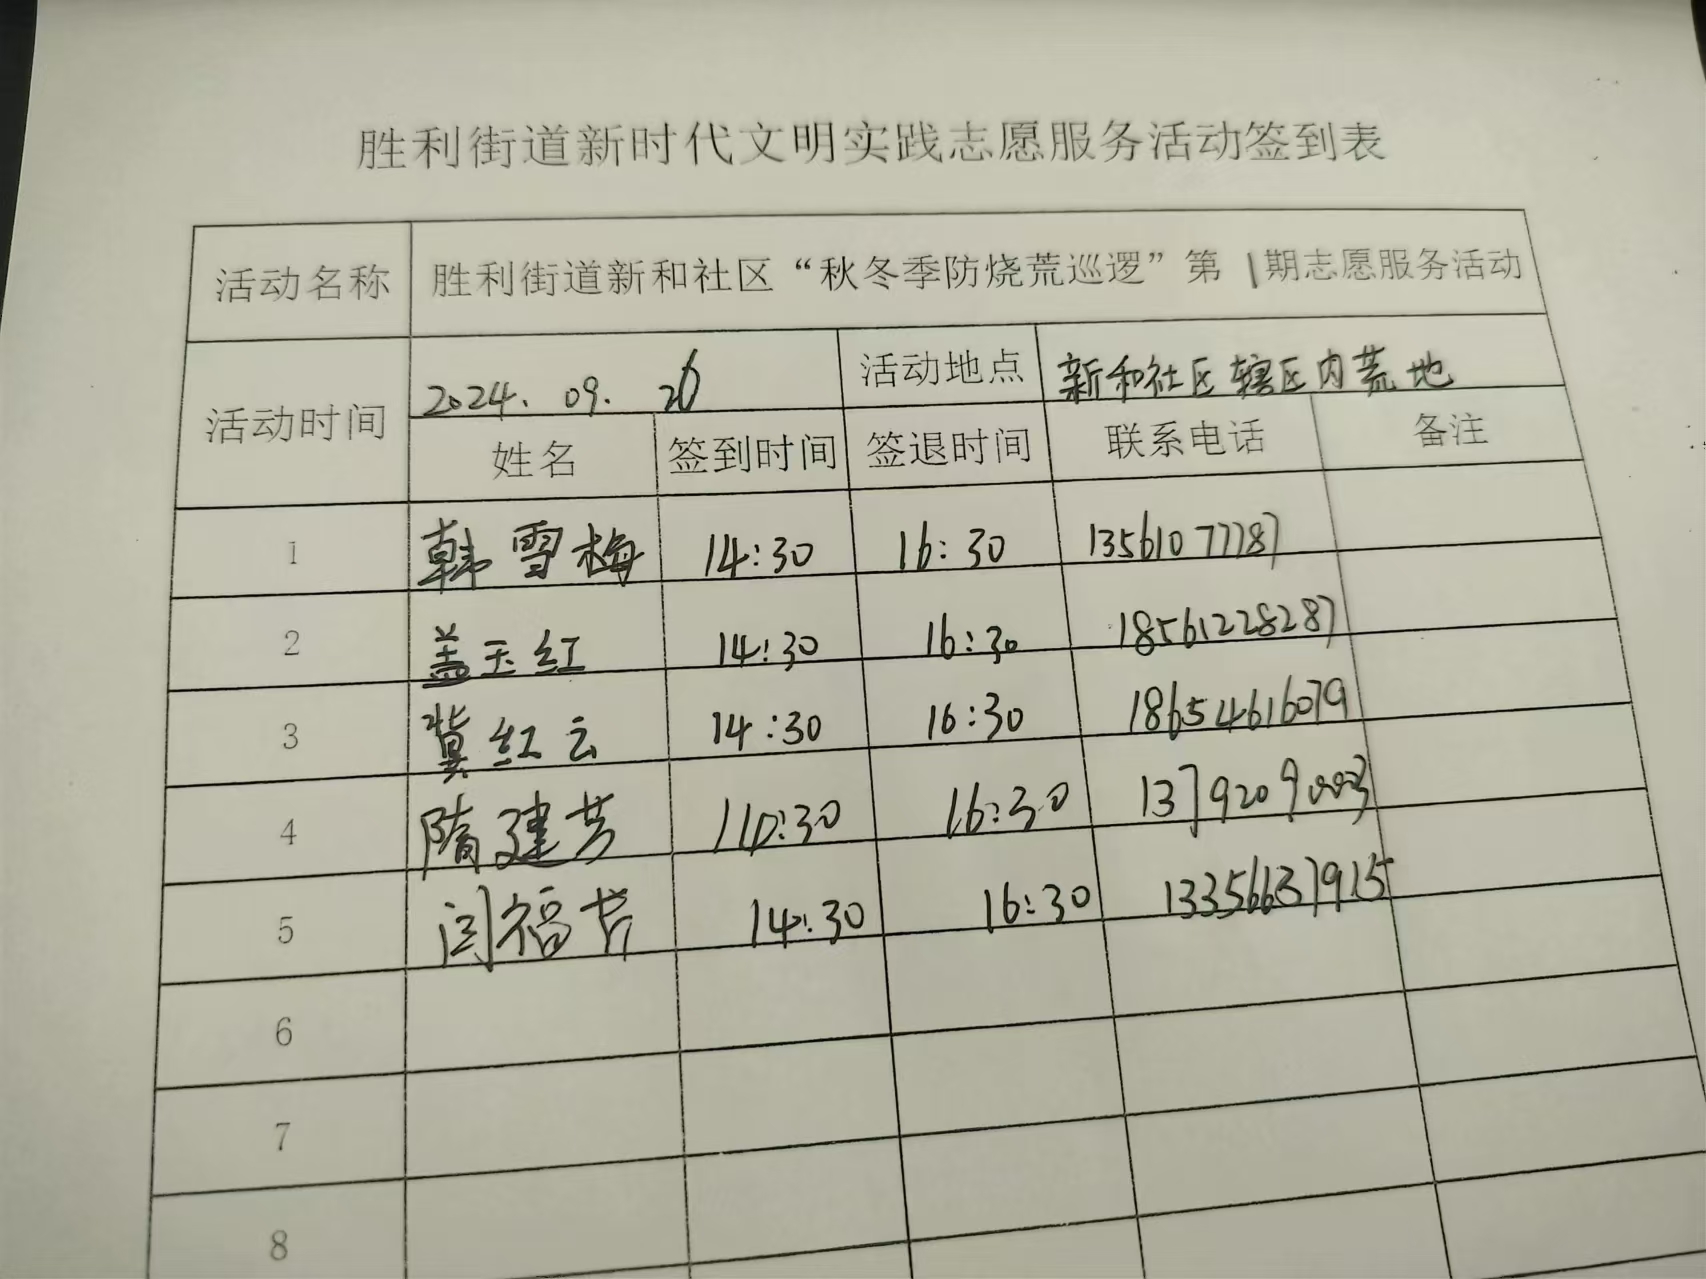 胜利街道新时代文明实践志愿服务活动签到表
活动名称 胜利街道新和社区“秋冬季防烧荒巡逻”第1期志愿服务活动
活动时间 2024.09.26 活动地点 新和社区辖区内荒地
姓名 签到时间 签退时间 联系电话 备注
1 韩雪梅 14:30 16:30 13561077787
2 盖玉红 14:30 16:30 18561228287
3 冀红云 14:30 16:30 18654616079
4 隋建芳 14:30 16:30
5 闫福芳 14:30 16:30 13356637915
6
7
8